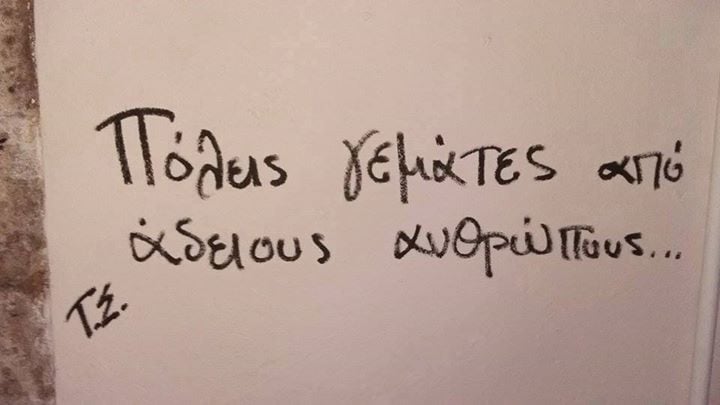 Πόλεις γεμάτες από
άδειους ανθρώπους...
Τ.Σ.